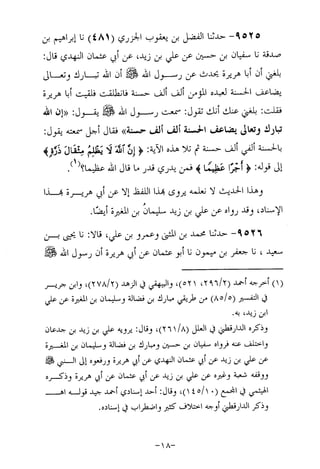 ٩٥٢٥- حدثنا الفضل بن يعقوب الجزري (٤٨١) نا إبراهيم بن
صدقة نا سفيان بن حسين عن علي بن زيد، عن أبي عثمان النهدي قال:
بلغني أن أبا هريرة يحدث عن رسول الله ﷺ أن الله تبارك وتعالى
يضاعف الحسنة لعبده ألف ألف حسنة فانطلقت فلقيت أبا هريرة
فقلت: بلغني عنك أنك تقول: سمعت رسول الله ﷺ يقول: «إن الله
تبارك وتعالى يضاعف الحسنة ألف ألف حسنة» قال أجل سمعته يقول:
بالحسنة ألفي ألف حسنة ثم تلا هذه الآية: ﴿ إِنَّ اللَّهَ لَا يَظْلِمُ مِثْقَالَ ذَرَّةٍ ﴾
إلى قوله: ﴿ أَجْرًا عَظِيمًا ﴾ فمن يدري قدر ما قال الله عظيماً؟(١).
وهذا الحديث لا نعلمه يروى بهذا اللفظ إلا عن أبي هريرة بهذا
الإسناد، وقد رواه عن علي بن زيد سليمان بن المغيرة أيضًا.
٩٥٢٦- حدثنا محمد وعمرو بن علي، قالا: نا يحيى بن
سعيد ، نا جعفر بن ميمون نا أبو عثمان عن أبي هريرة أن رسول الله ﷺ
(١) أخرجه أحمد (٢٩٦/٢، ٥٢١)، والبيهقي في الزهد (٢٧٨/٢)، وابن جرير
في التفسير (٨٥/٥) من طريقي مبارك بن فضالة وسليمان بن المغيرة عن علي
ابن زيد، به.
وذكره الدارقطني في العلل (٢٦١/٨)، وقال: يرويه علي بن زيد بن جدعان
واختلف عنه فرواه سفيان بن حسين ومبارك بن فضالة وسليمان بن المغيرة
عن علي بن زيد عن أبي عثمان النهدي عن أبي هريرة ورفعوه إلى النبي ﷺ
ووقفه شعبة وغيره عن علي بن زيد عن أبي عثمان عن أبي هريرة وذكره
الهيثمي في المجمع (١٤٥/١٠)، وقال: أحد إسنادي أحمد جيد قوله اهـ
وذكر الدارقطني أوجه اختلاف كثير واضطراب في إسناده.
-١٨-